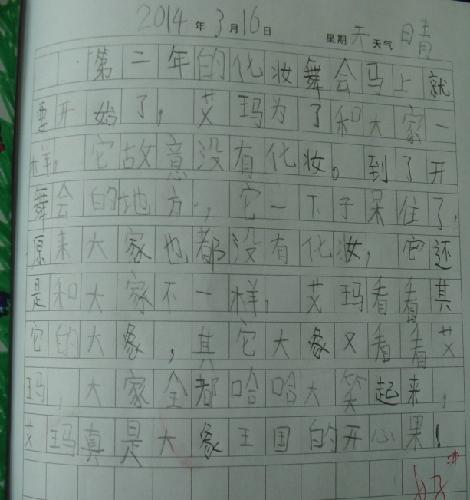 2014年3月16日 星期天 天气 晴
第二年的化妆舞会马上就
要开始了，艾玛为了和大家一
样，它故意没有化妆。到了开
舞会的地方，它一下子呆住了，
原来大家也都没有化妆，它还
是和大家不一样，艾玛看看其
它的大象，其它大象又看看艾
玛，大家全都哈哈大笑起来，
艾玛真是大象王国的开心果！